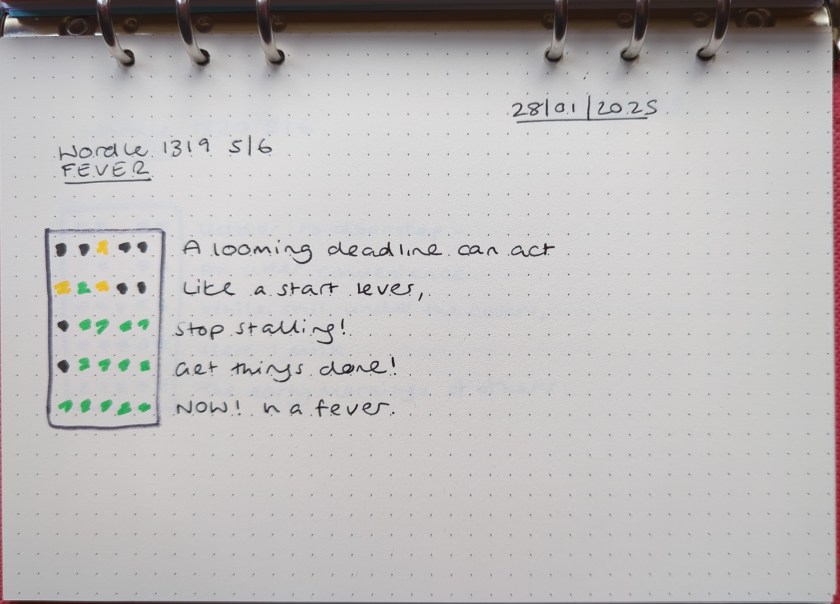 28/01/2025
Wordle 1319 5/6
FEVER
A looming deadline can act
Like a start lever,
Stop stalling!
Get things done!
NOW! In a fever.